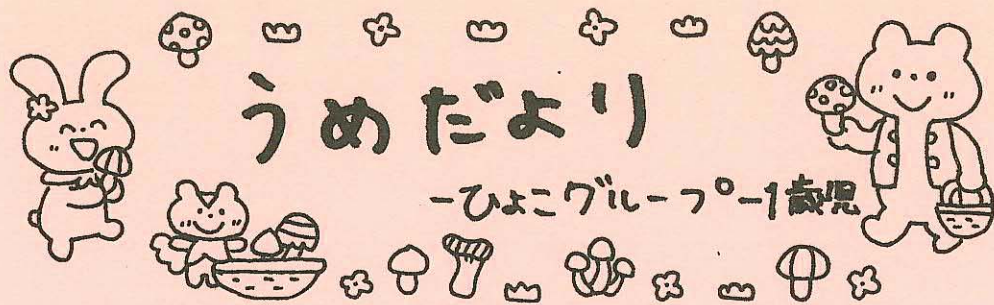 うめだより
-ひよこグループ-1歳児